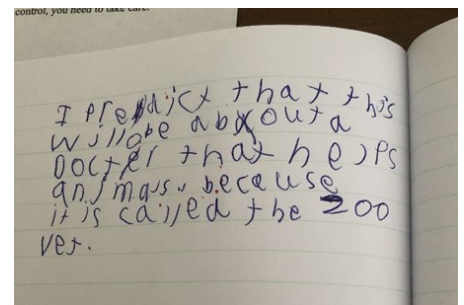 control, you need to take care.
I predict that this
will be about a
Docter that helps
animals. because
it is called the zoo
vet.